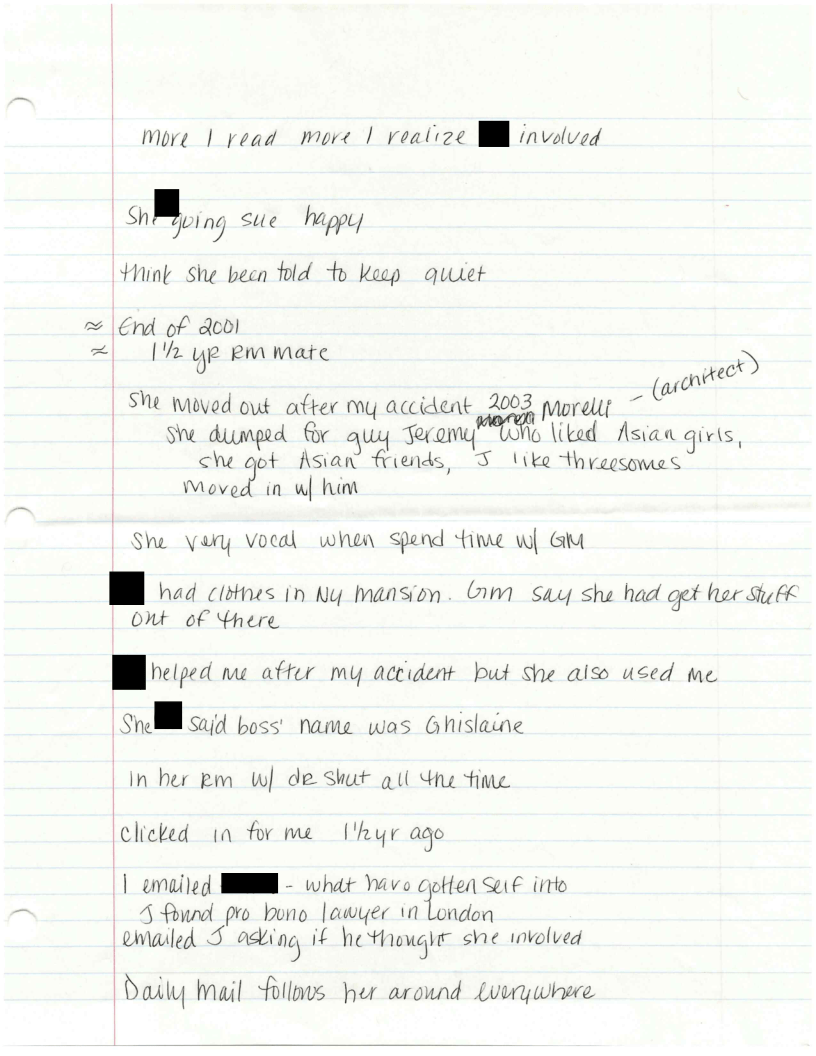 more I read more I realize involved
She going sue happy
think she been told to keep quiet
≈ End of 2001
≈ 1½ yr rm mate
She moved out after my accident 2003 Morelli – (architect)
She dumped for guy Jeremy who liked Asian girls,
she got Asian friends, J like threesomes
moved in w/ him
She very vocal when spend time w/ GM
had clothes in NY mansion. Gm say she had get her stuff
out of there
helped me after my accident but she also used me
She said boss' name was Ghislaine
in her rm w/ dr shut all the time
clicked in for me 1½ yr ago
I emailed - what have gotten self into
J found pro bono lawyer in London
emailed J asking if he thought she involved
Daily Mail follows her around everywhere